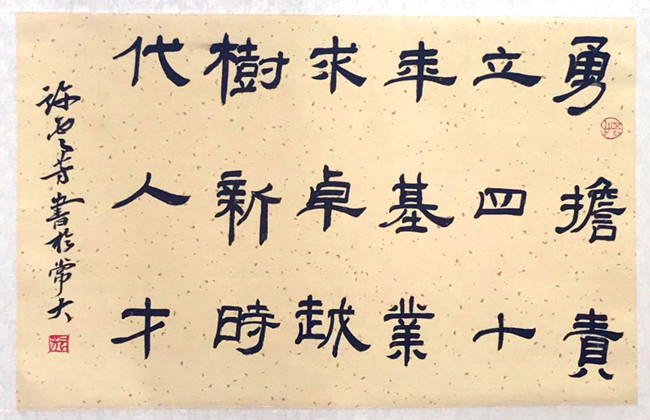 勇擔責
立四十
年基業
求卓越
樹新時
代人才
書於常大